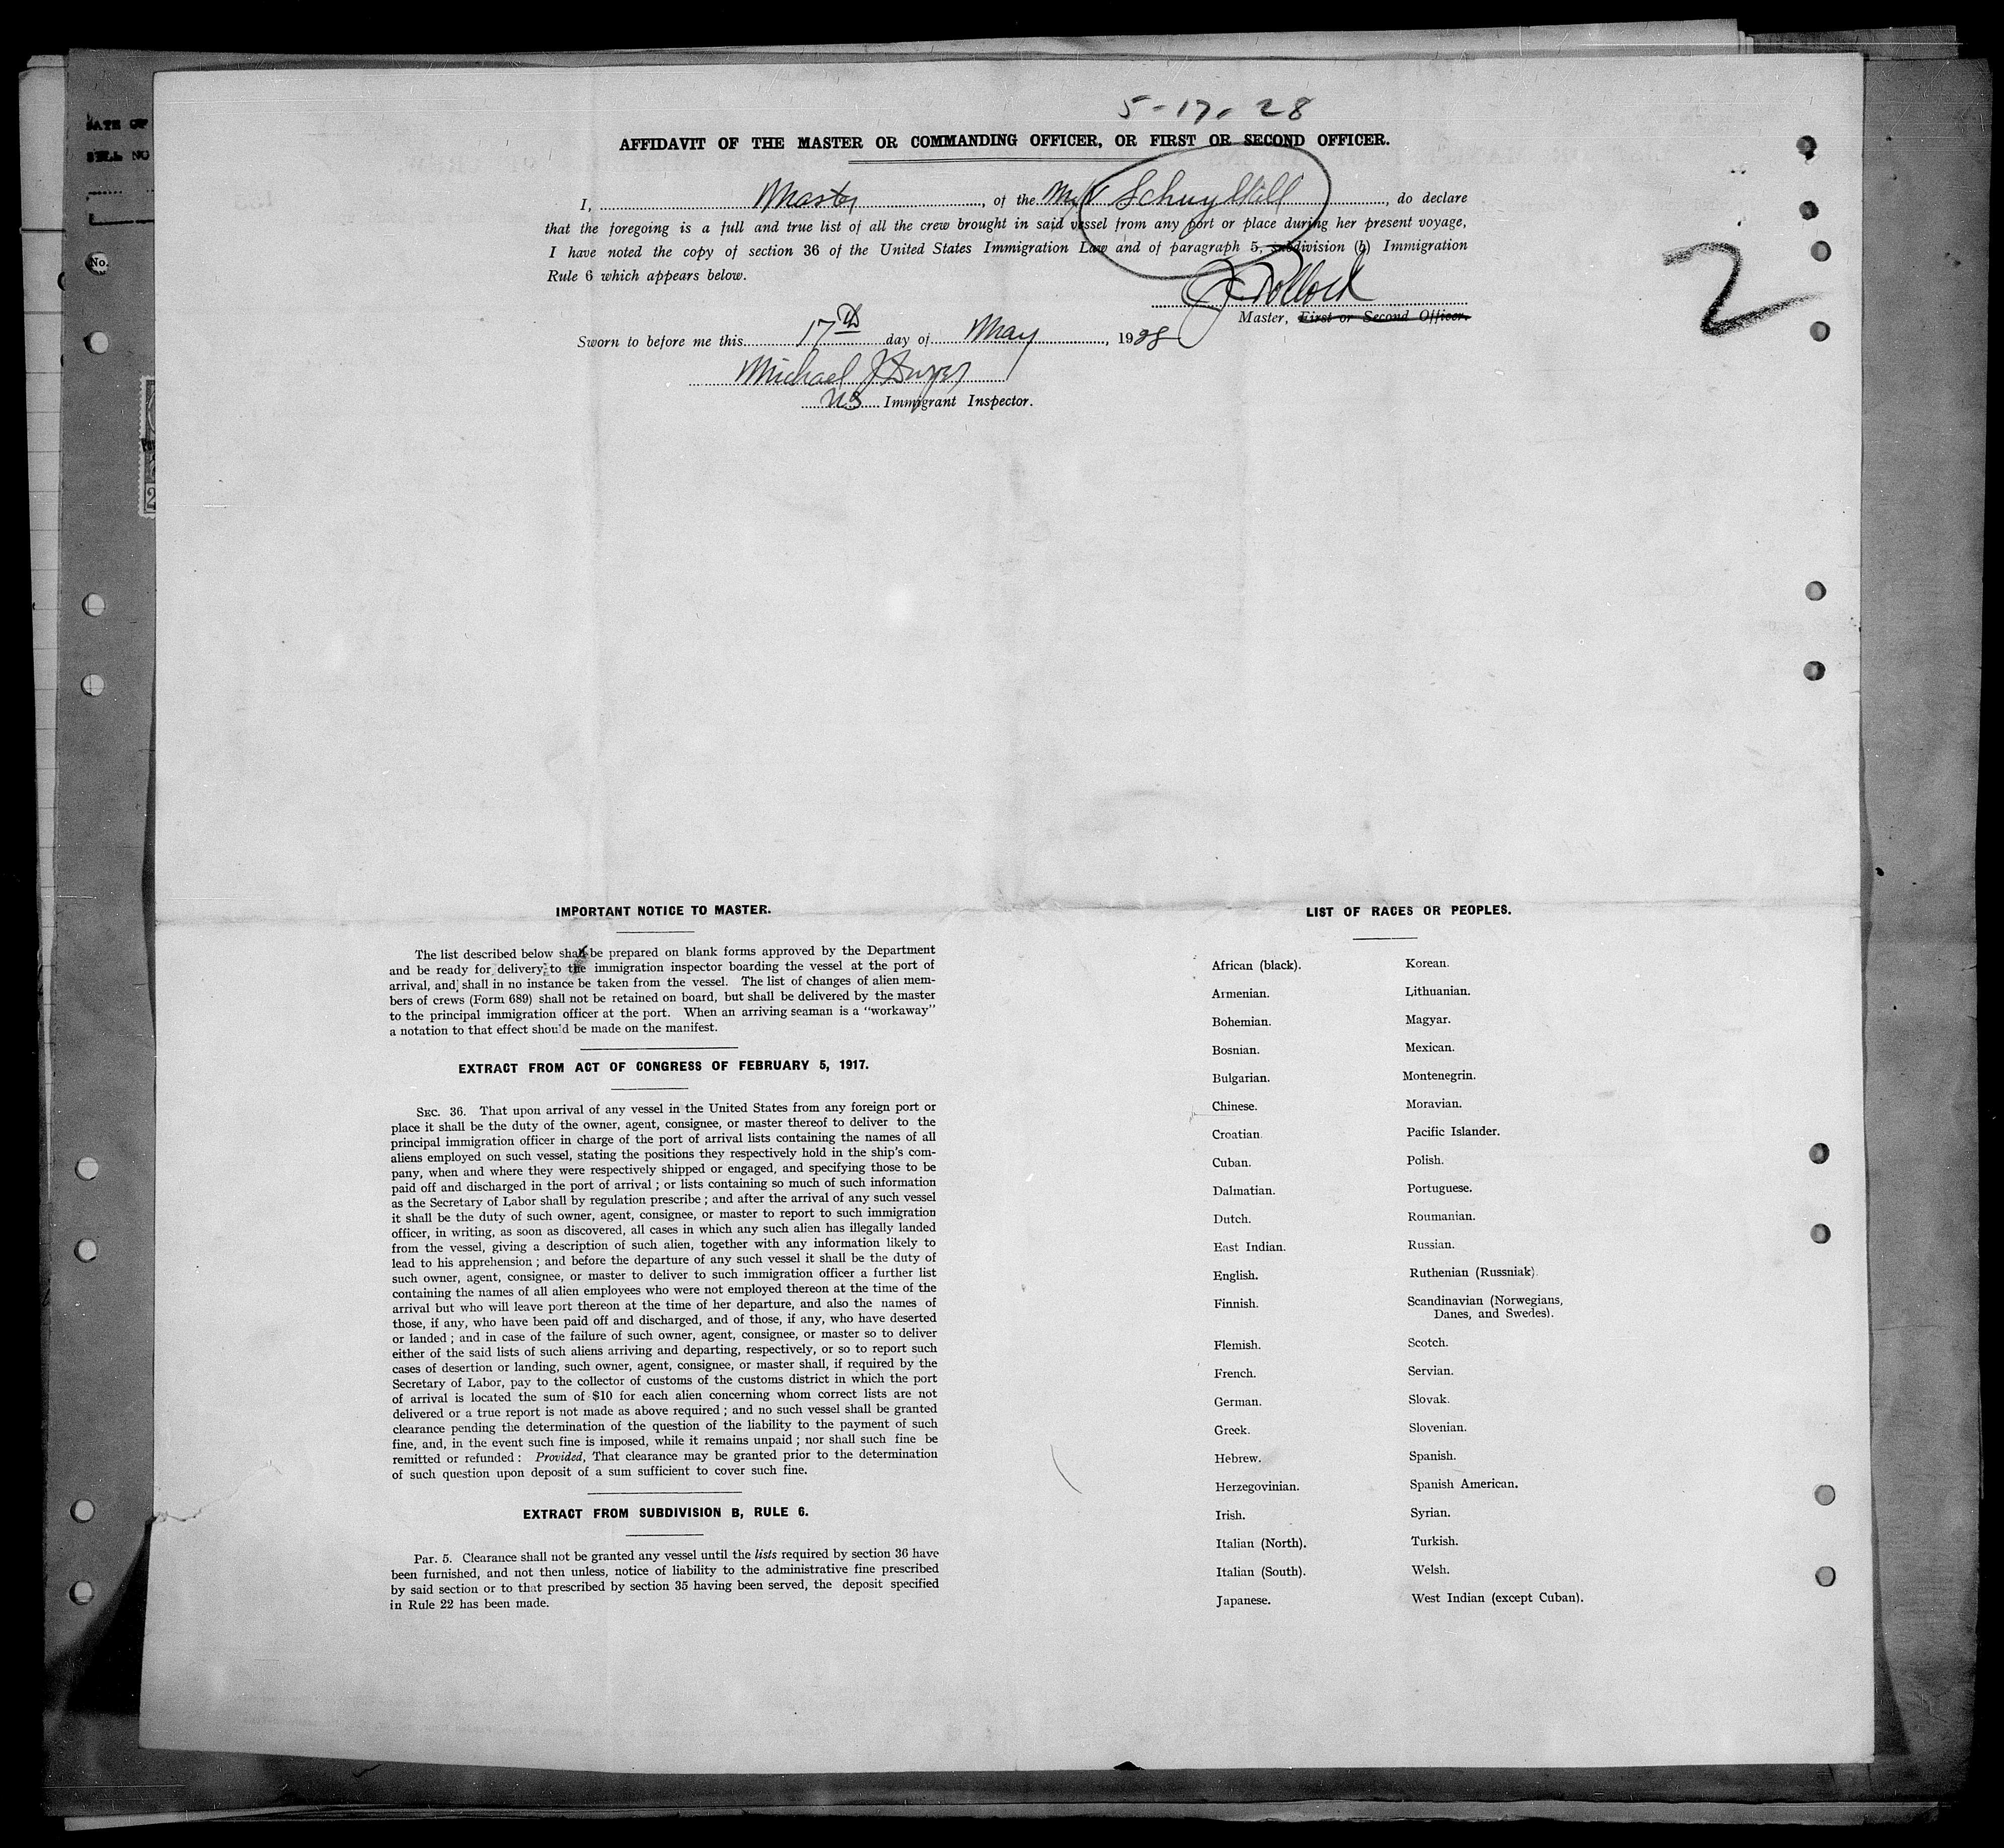 5-17-28
AFFIDAVIT OF THE MASTER OR COMMANDING OFFICER, OR FIRST OR SECOND OFFICER.
I, Master, of the M/V Schuylkill, do declare
that the foregoing is a full and true list of all the crew brought in said vessel from any port or place during her present voyage,
I have noted the copy of section 36 of the United States Immigration Law and of paragraph 5, subdivision (b) Immigration
Rule 6 which appears below.
2
J Pollock
Master, First or Second Officer.
Sworn to before me this 17th day of May, 1928
Michael J Dwyer
US Immigrant Inspector.
DATE OF
No.
IMPORTANT NOTICE TO MASTER.
The list described below shall be prepared on blank forms approved by the Department
and be ready for delivery to the immigration inspector boarding the vessel at the port of
arrival, and shall in no instance be taken from the vessel. The list of changes of alien mem-
bers of crews (Form 689) shall not be retained on board, but shall be delivered by the master
to the principal immigration officer at the port. When an arriving seaman is a "workaway"
a notation to that effect should be made on the manifest.
EXTRACT FROM ACT OF CONGRESS OF FEBRUARY 5, 1917.
SEC. 36. That upon arrival of any vessel in the United States from any foreign port or
place it shall be the duty of the owner, agent, consignee, or master thereof to deliver to the
principal immigration officer in charge of the port of arrival lists containing the names of all
aliens employed on such vessel, stating the positions they respectively hold in the ship's com-
pany, when and where they were respectively shipped or engaged, and specifying those to be
paid off and discharged in the port of arrival; or lists containing so much of such information
as the Secretary of Labor shall by regulation prescribe; and after the arrival of any such vessel
it shall be the duty of such owner, agent, consignee, or master to report to such immigration
officer, in writing, as soon as discovered, all cases in which any such alien has illegally landed
from the vessel, giving a description of such alien, together with any information likely to
lead to his apprehension; and before the departure of any such vessel it shall be the duty of
such owner, agent, consignee, or master to deliver to such immigration officer a further list
containing the names of all alien employees who were not employed thereon at the time of the
arrival but who will leave port thereon at the time of her departure, and also the names of
those, if any, who have been paid off and discharged, and of those, if any, who have deserted
or landed; and in case of the failure of such owner, agent, consignee, or master so to deliver
either of the said lists of such aliens arriving and departing, respectively, or so to report such
cases of desertion or landing, such owner, agent, consignee, or master shall, if required by the
Secretary of Labor, pay to the collector of customs of the customs district in which the port
of arrival is located the sum of $10 for each alien concerning whom correct lists are not
delivered or a true report is not made as above required; and no such vessel shall be granted
clearance pending the determination of the question of the liability to the payment of such
fine, and, in the event such fine is imposed, while it remains unpaid; nor shall such fine be
remitted or refunded: Provided, That clearance may be granted prior to the determination
of such question upon deposit of a sum sufficient to cover such fine.
EXTRACT FROM SUBDIVISION B, RULE 6.
Par. 5. Clearance shall not be granted any vessel until the lists required by section 36 have
been furnished, and not then unless, notice of liability to the administrative fine prescribed
by said section or to that prescribed by section 35 having been served, the deposit specified
in Rule 22 has been made.
LIST OF RACES OR PEOPLES.
African (black).
Armenian.
Bohemian.
Bosnian.
Bulgarian.
Chinese.
Croatian.
Cuban.
Dalmatian.
Dutch.
East Indian.
English.
Finnish.
Flemish.
French.
German.
Greek.
Hebrew.
Herzegovinian.
Irish.
Italian (North).
Italian (South).
Japanese.
Korean.
Lithuanian.
Magyar.
Mexican.
Montenegrin.
Moravian.
Pacific Islander.
Polish.
Portuguese.
Roumanian.
Russian.
Ruthenian (Russniak).
Scandinavian (Norwegians,
Danes, and Swedes).
Scotch.
Servian.
Slovak.
Slovenian.
Spanish.
Spanish American.
Syrian.
Turkish.
Welsh.
West Indian (except Cuban).